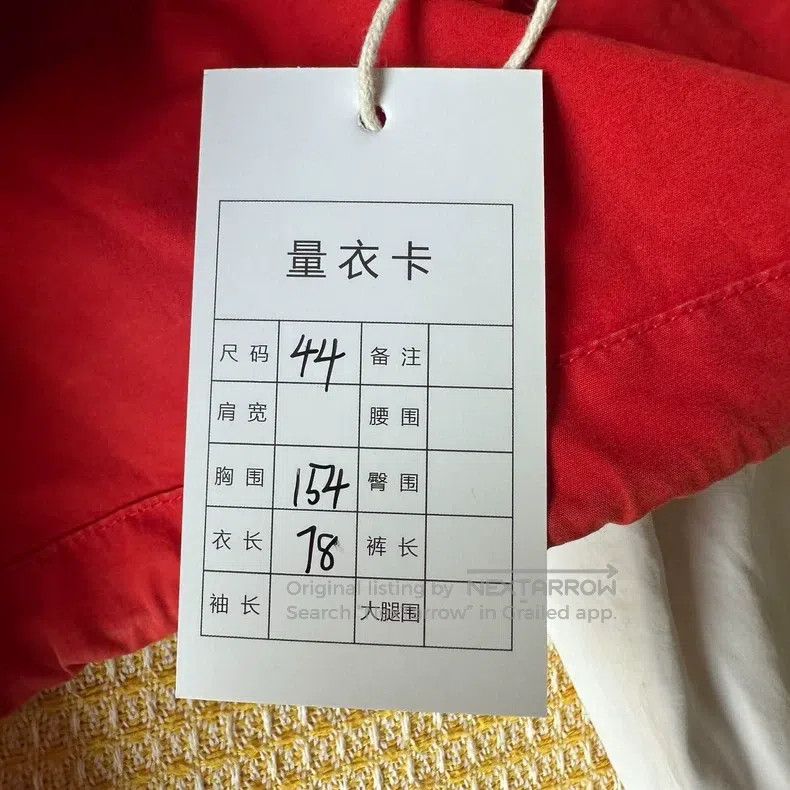 量衣卡
尺码 44 备注
肩宽 腰围
胸围 154 臀围
衣长 78 裤长
袖长 大腿围
Original listing by NEXTARROW
Search "nextarrow" in Grailed app.